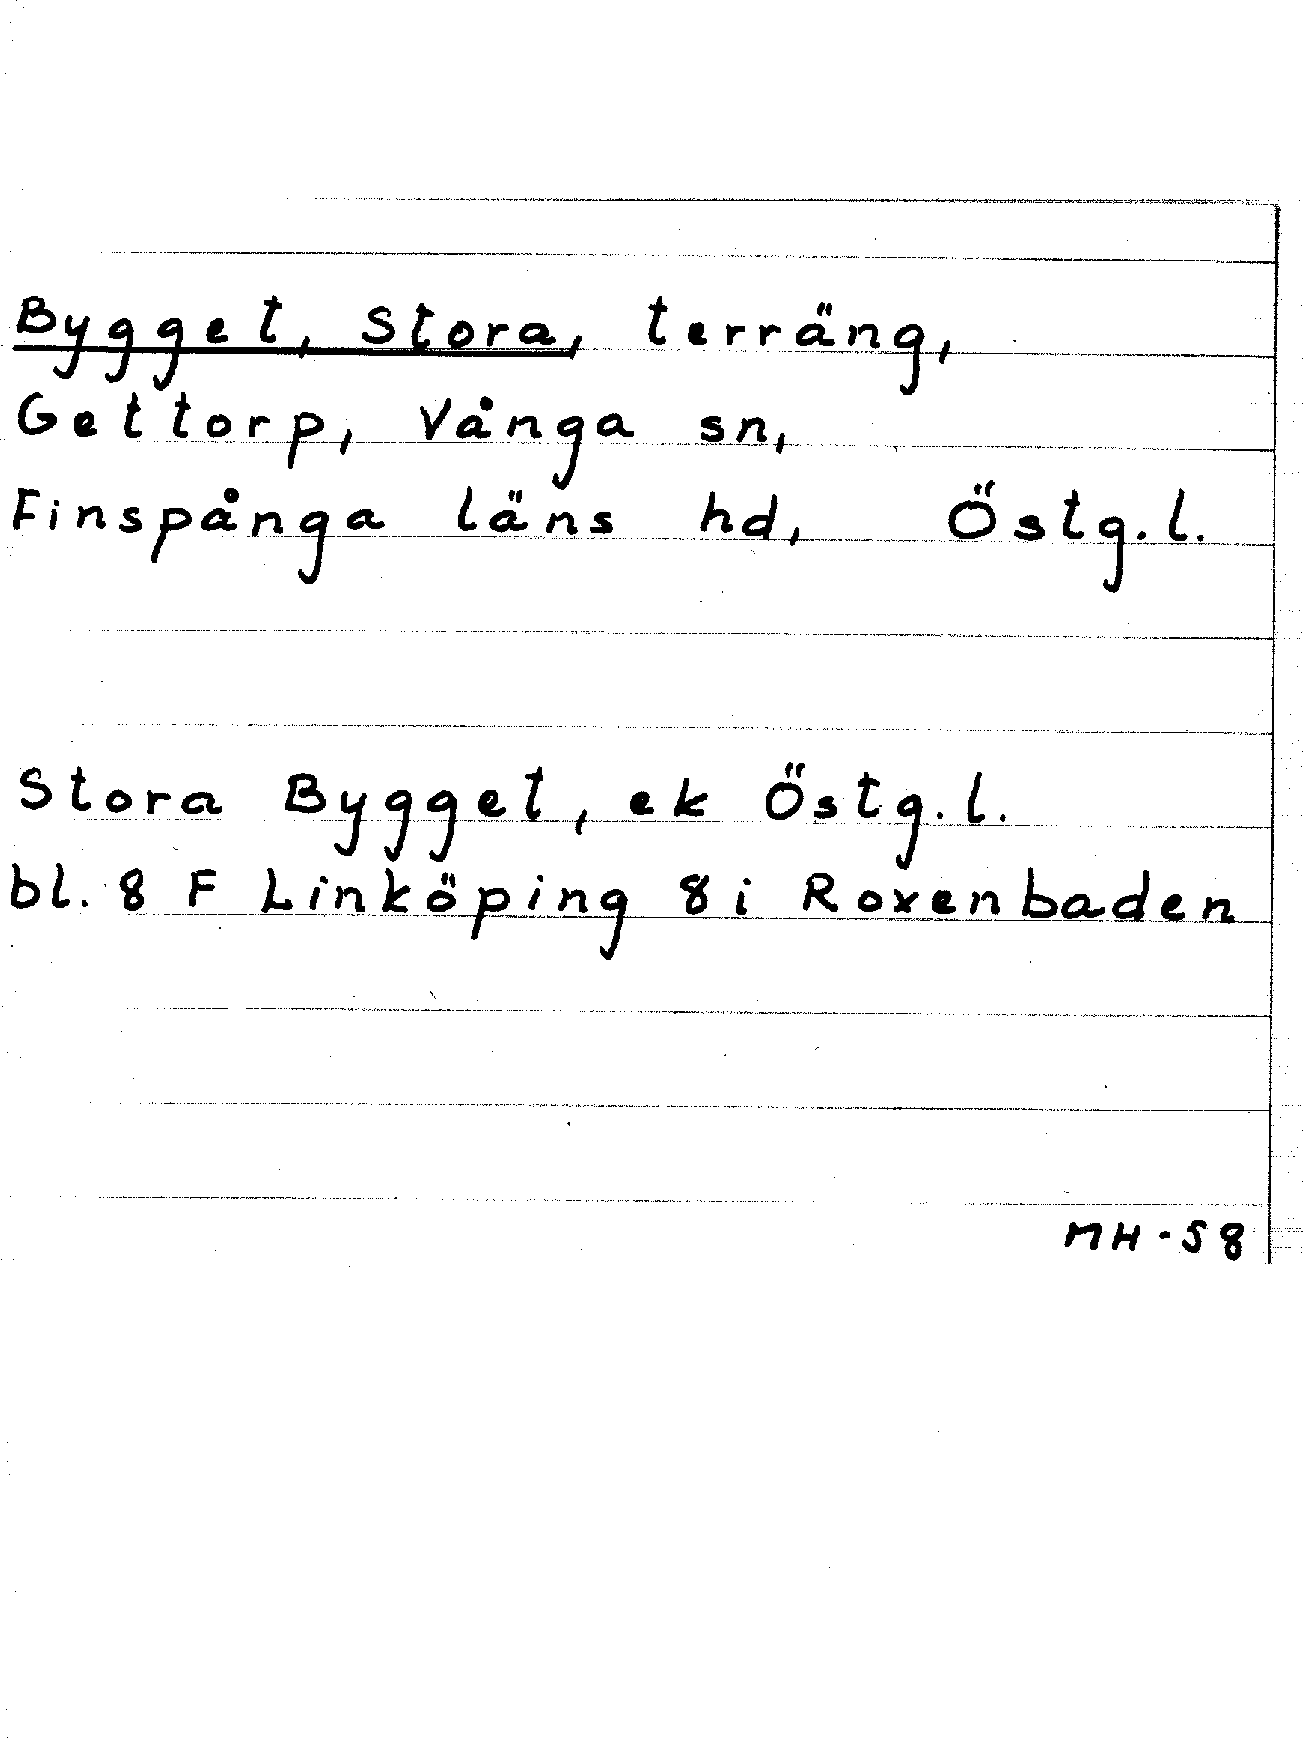 Bygget, Stora, terräng,
Gettorp, Vånga sn,
Finspånga läns hd, Östg.l.
Stora Bygget, ek Östg.l.
bl. 8 F Linköping 8 i Roxenbaden
MH-58